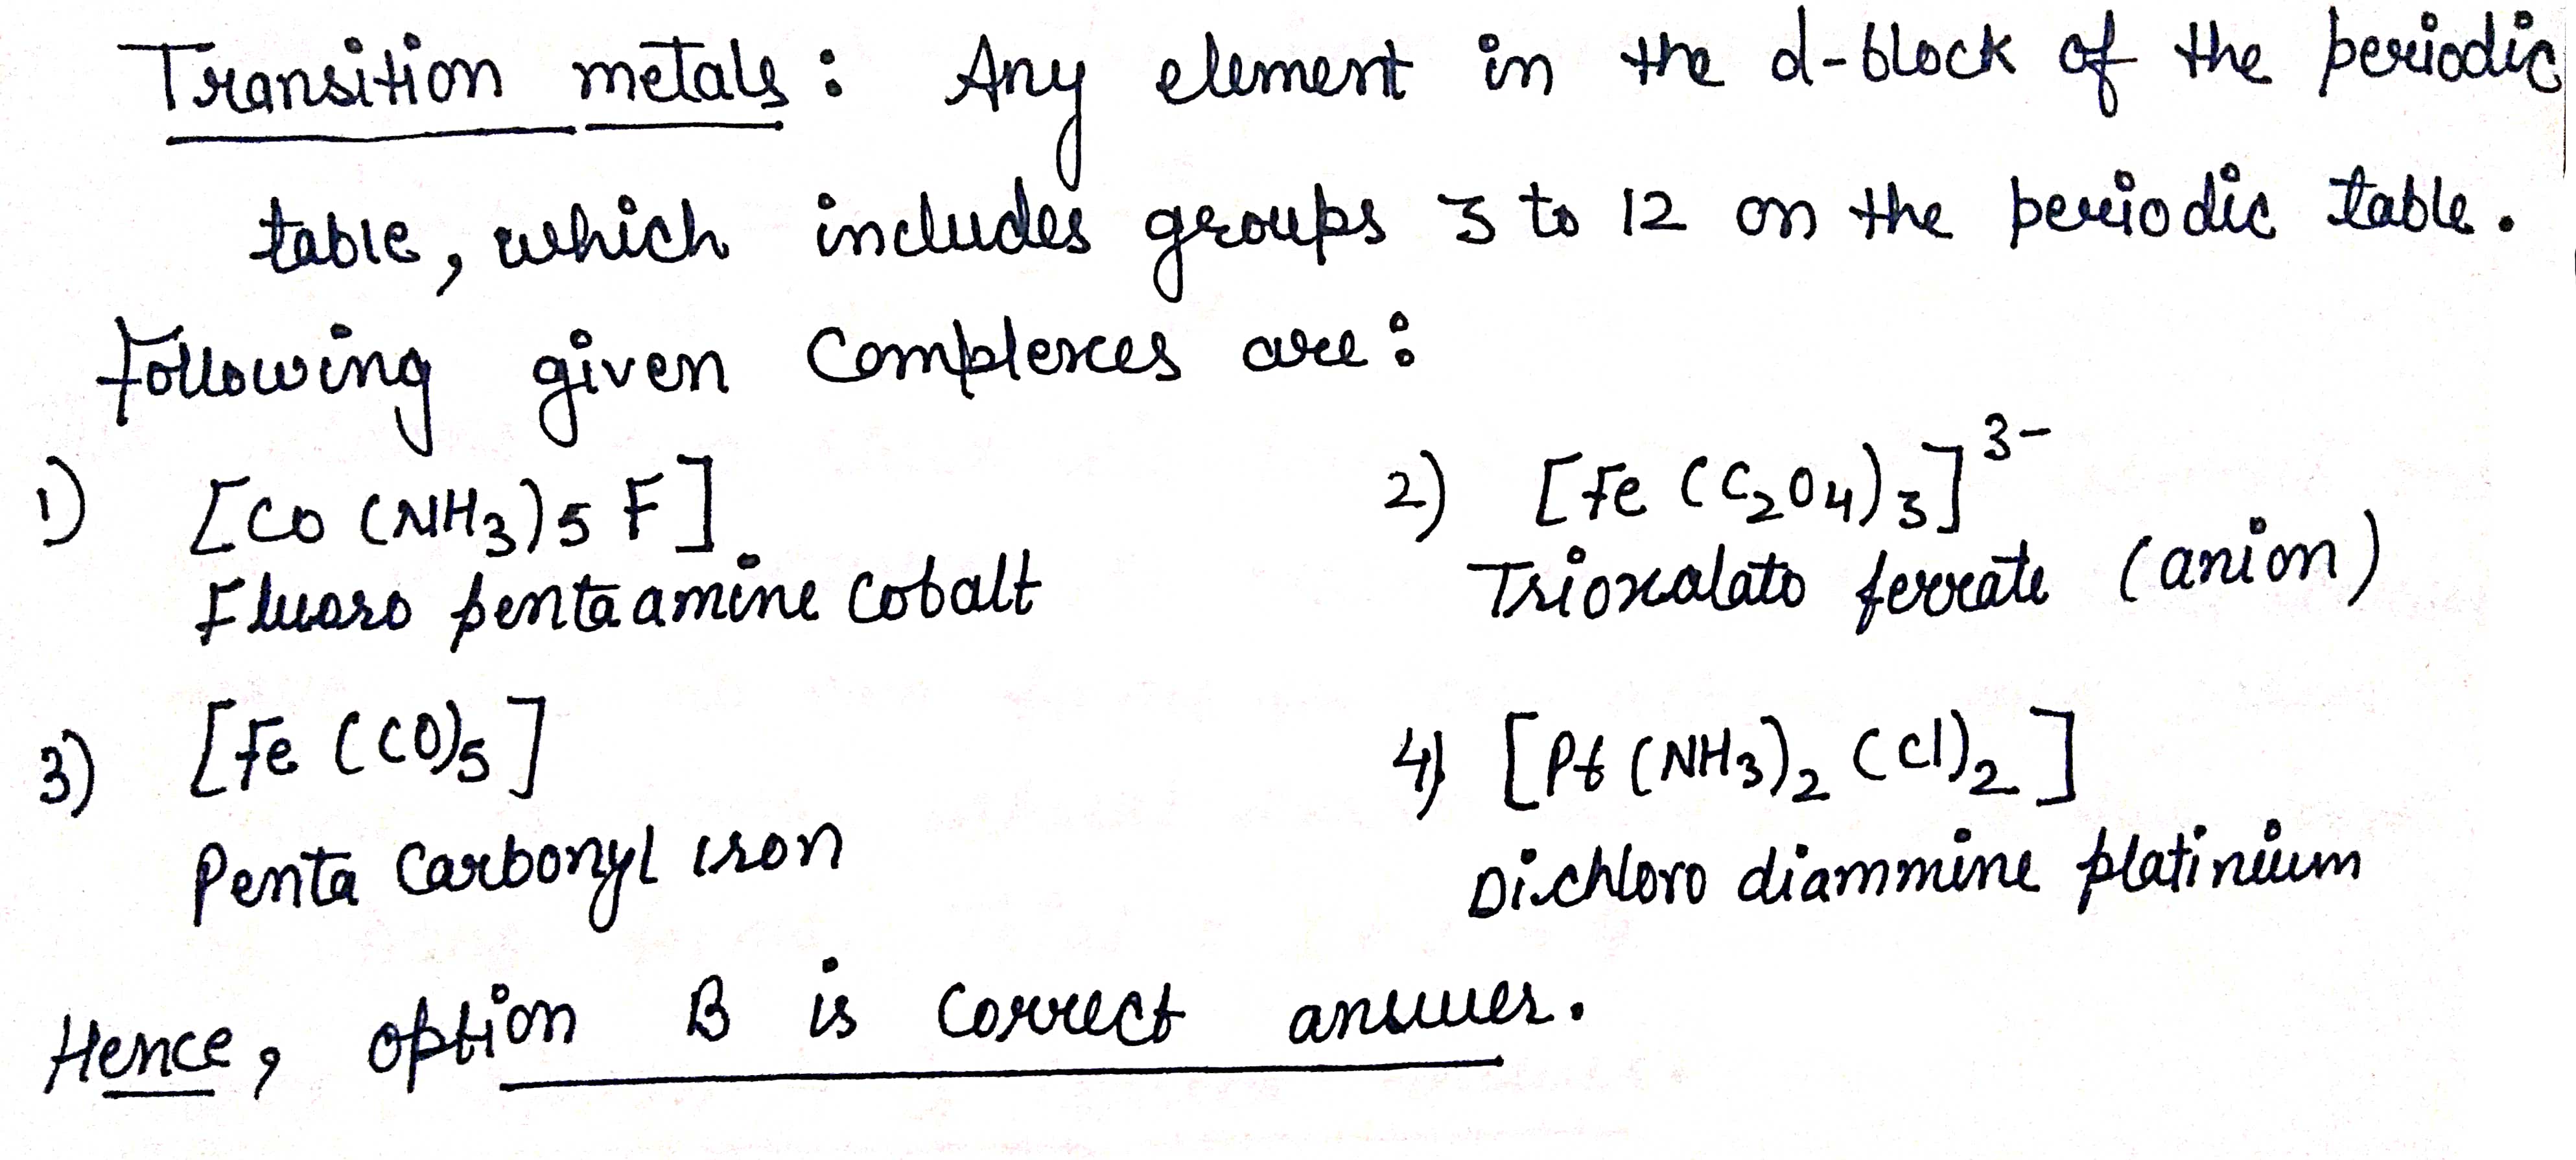 Transition metals : Any element in the d-block of the periodic
table, which includes groups 3 to 12 on the periodic table.
Following given Complexes are :
1) [Co (NH3)5 F]
Fluoro pentaamine Cobalt
2) [Fe (C2O4)3]3-
Trioxalato ferrate (anion)
3) [Fe (CO)5]
Penta Carbonyl iron
4) [Pt (NH3)2 (Cl)2]
Dichloro diammine platinium
Hence, option B is Correct answer.